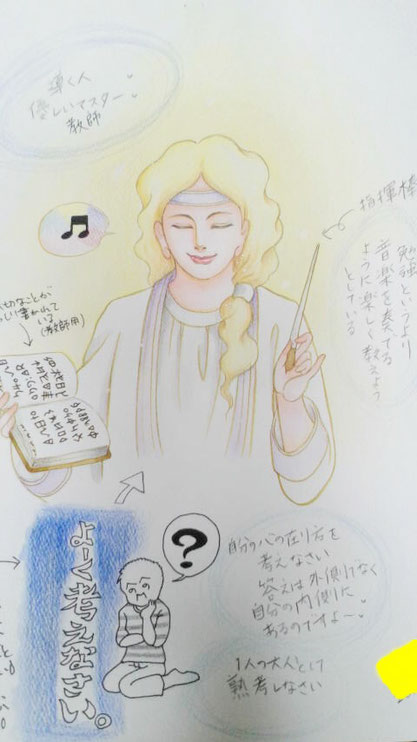 導く人
優しいマスター
教師
指揮棒
勉強というより
音楽を奏でる
ように楽しく教えよう
としている
切なことが
書かれて
いる
(教師用)
よーく考えなさい。
?
自分の心の在り方を
考えなさい
答えは外側でなく
自分の内側に
あるのですよ〜
1人の大人として
熟考しなさい